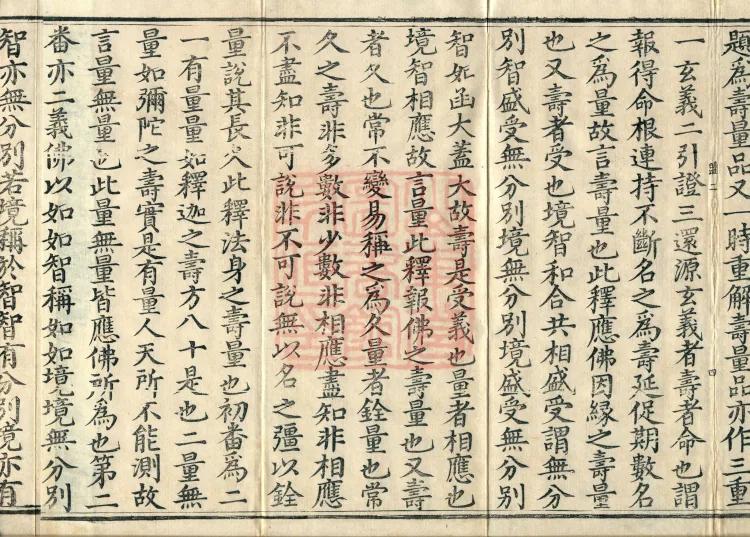 題為壽量品又一時重解壽量品亦作三重
一玄義二引證三還源玄義者壽者命也謂
報得命根連持不斷名之為壽延促期數名
之為量故言壽量也此釋應佛因緣之壽量
也又壽者受也境智和合共相盛受謂無分
別智盛受無分別境無分別境盛受無分別
智如函大蓋大故壽是受義也量者相應也
境智相應故言量此釋報佛之壽量也又壽
者久也常不變易稱之為久量者銓量也常
久之壽非多數非少數非相應盡知非相應
不盡知非可說非不可說無以名之彊以銓
量說其長久此釋法身之壽量也初番為二
一有量量如釋迦之壽方八十是也二量無
量如彌陀之壽實是有量人天所不能測故
言量無量也此量無量皆應佛所為也第二
番亦二義佛以如如智稱如如境境無分別
智亦無分別若境稱於智智有分別境亦有